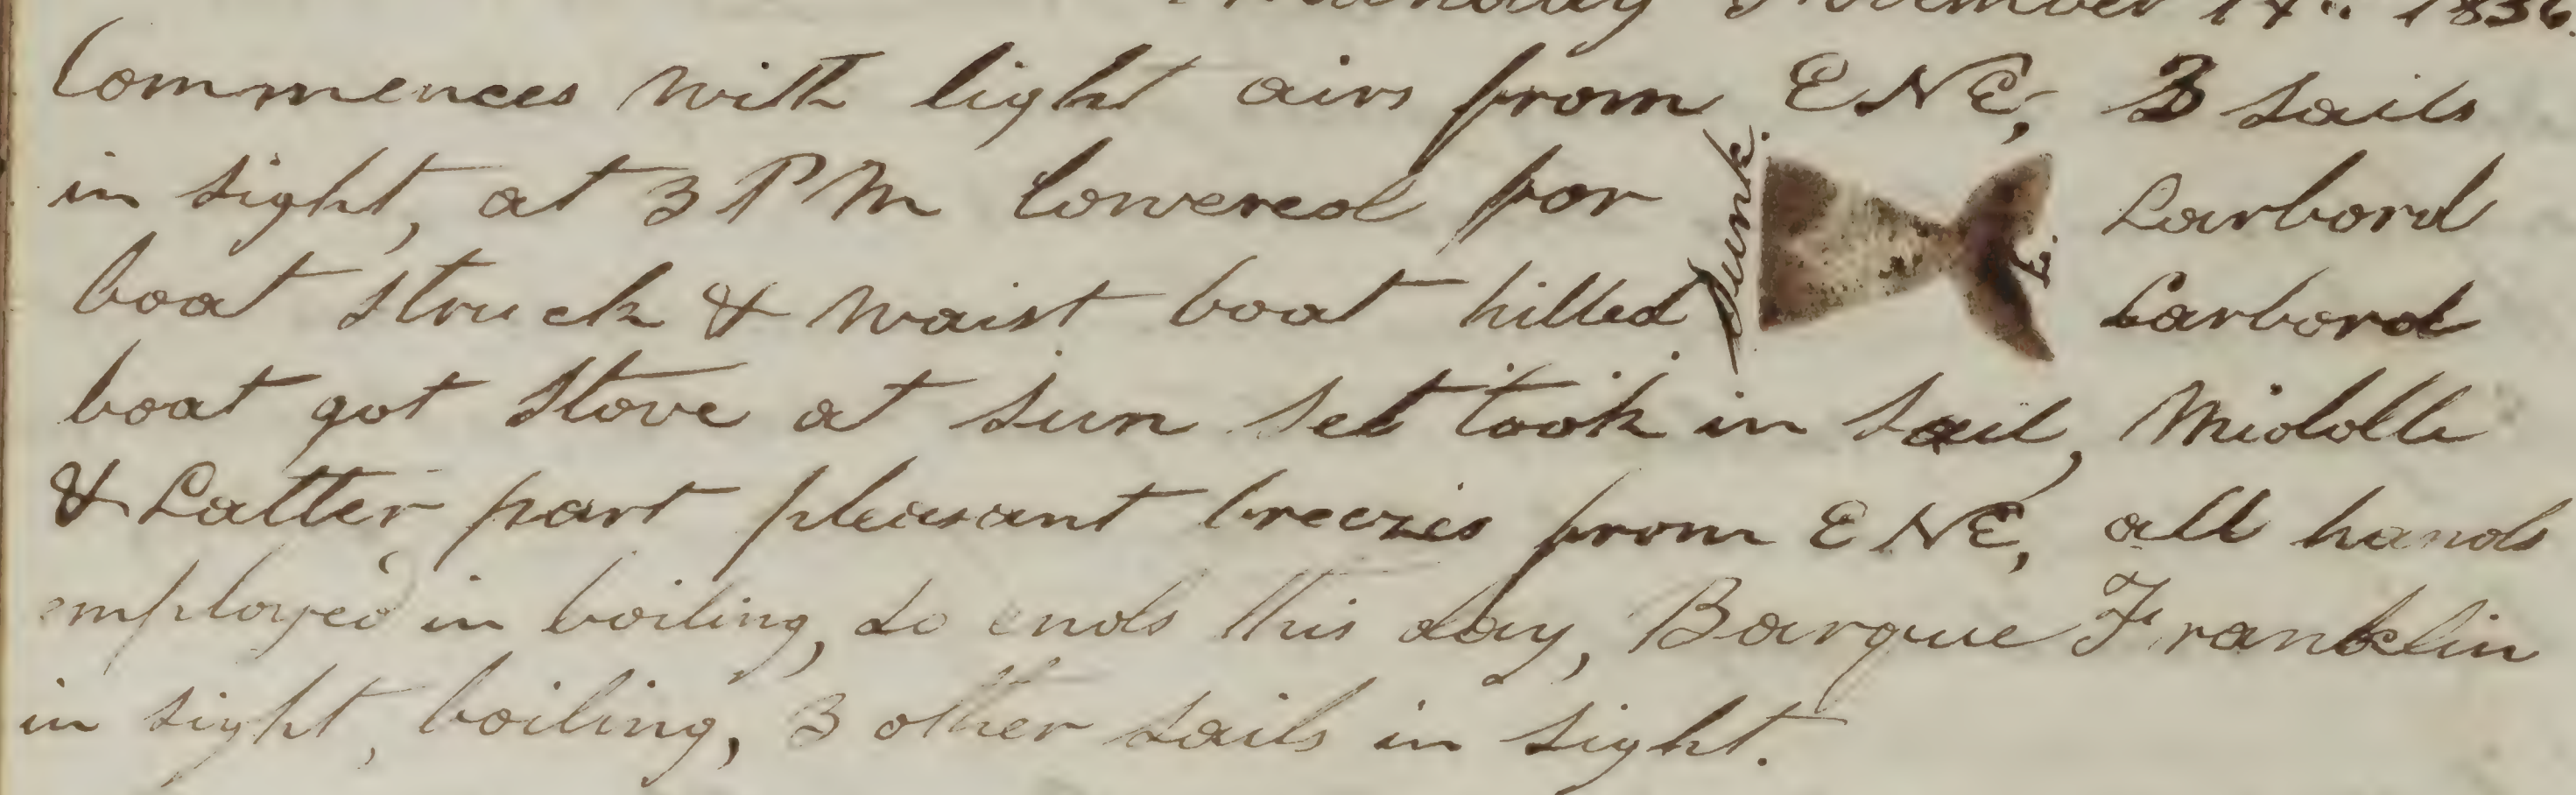 November 14th 1836.
Commences with light airs from ENE, 3 sails
in sight, at 3 PM lowered for Larbord
sunk.
boat struck & Waist boat killed Larbord
boat got stove at sun set took in sail, Middle
& Latter part pleasant breezes from ENE, all hands
employed in boiling, so ends this day, Barque Franklin
in sight, boiling, 3 other sails in sight.